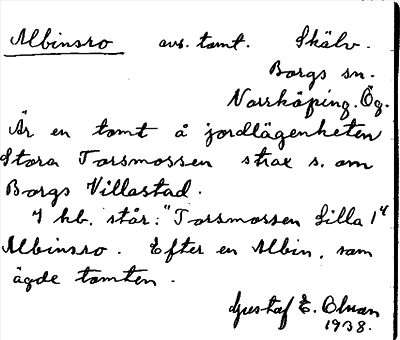 Albinsro avs. tomt. Skälv.
Borgs sn.
Norrköping. Ög.
Är en tomt å jordlägenheten
Stora Torsmossen strax s. om
Borgs Villastad.
I hb. står: "Torsmossen Lilla 1"
Albinsro. Efter en Albin, som
ägde tomten.
Gustaf E. Ohman
1938.